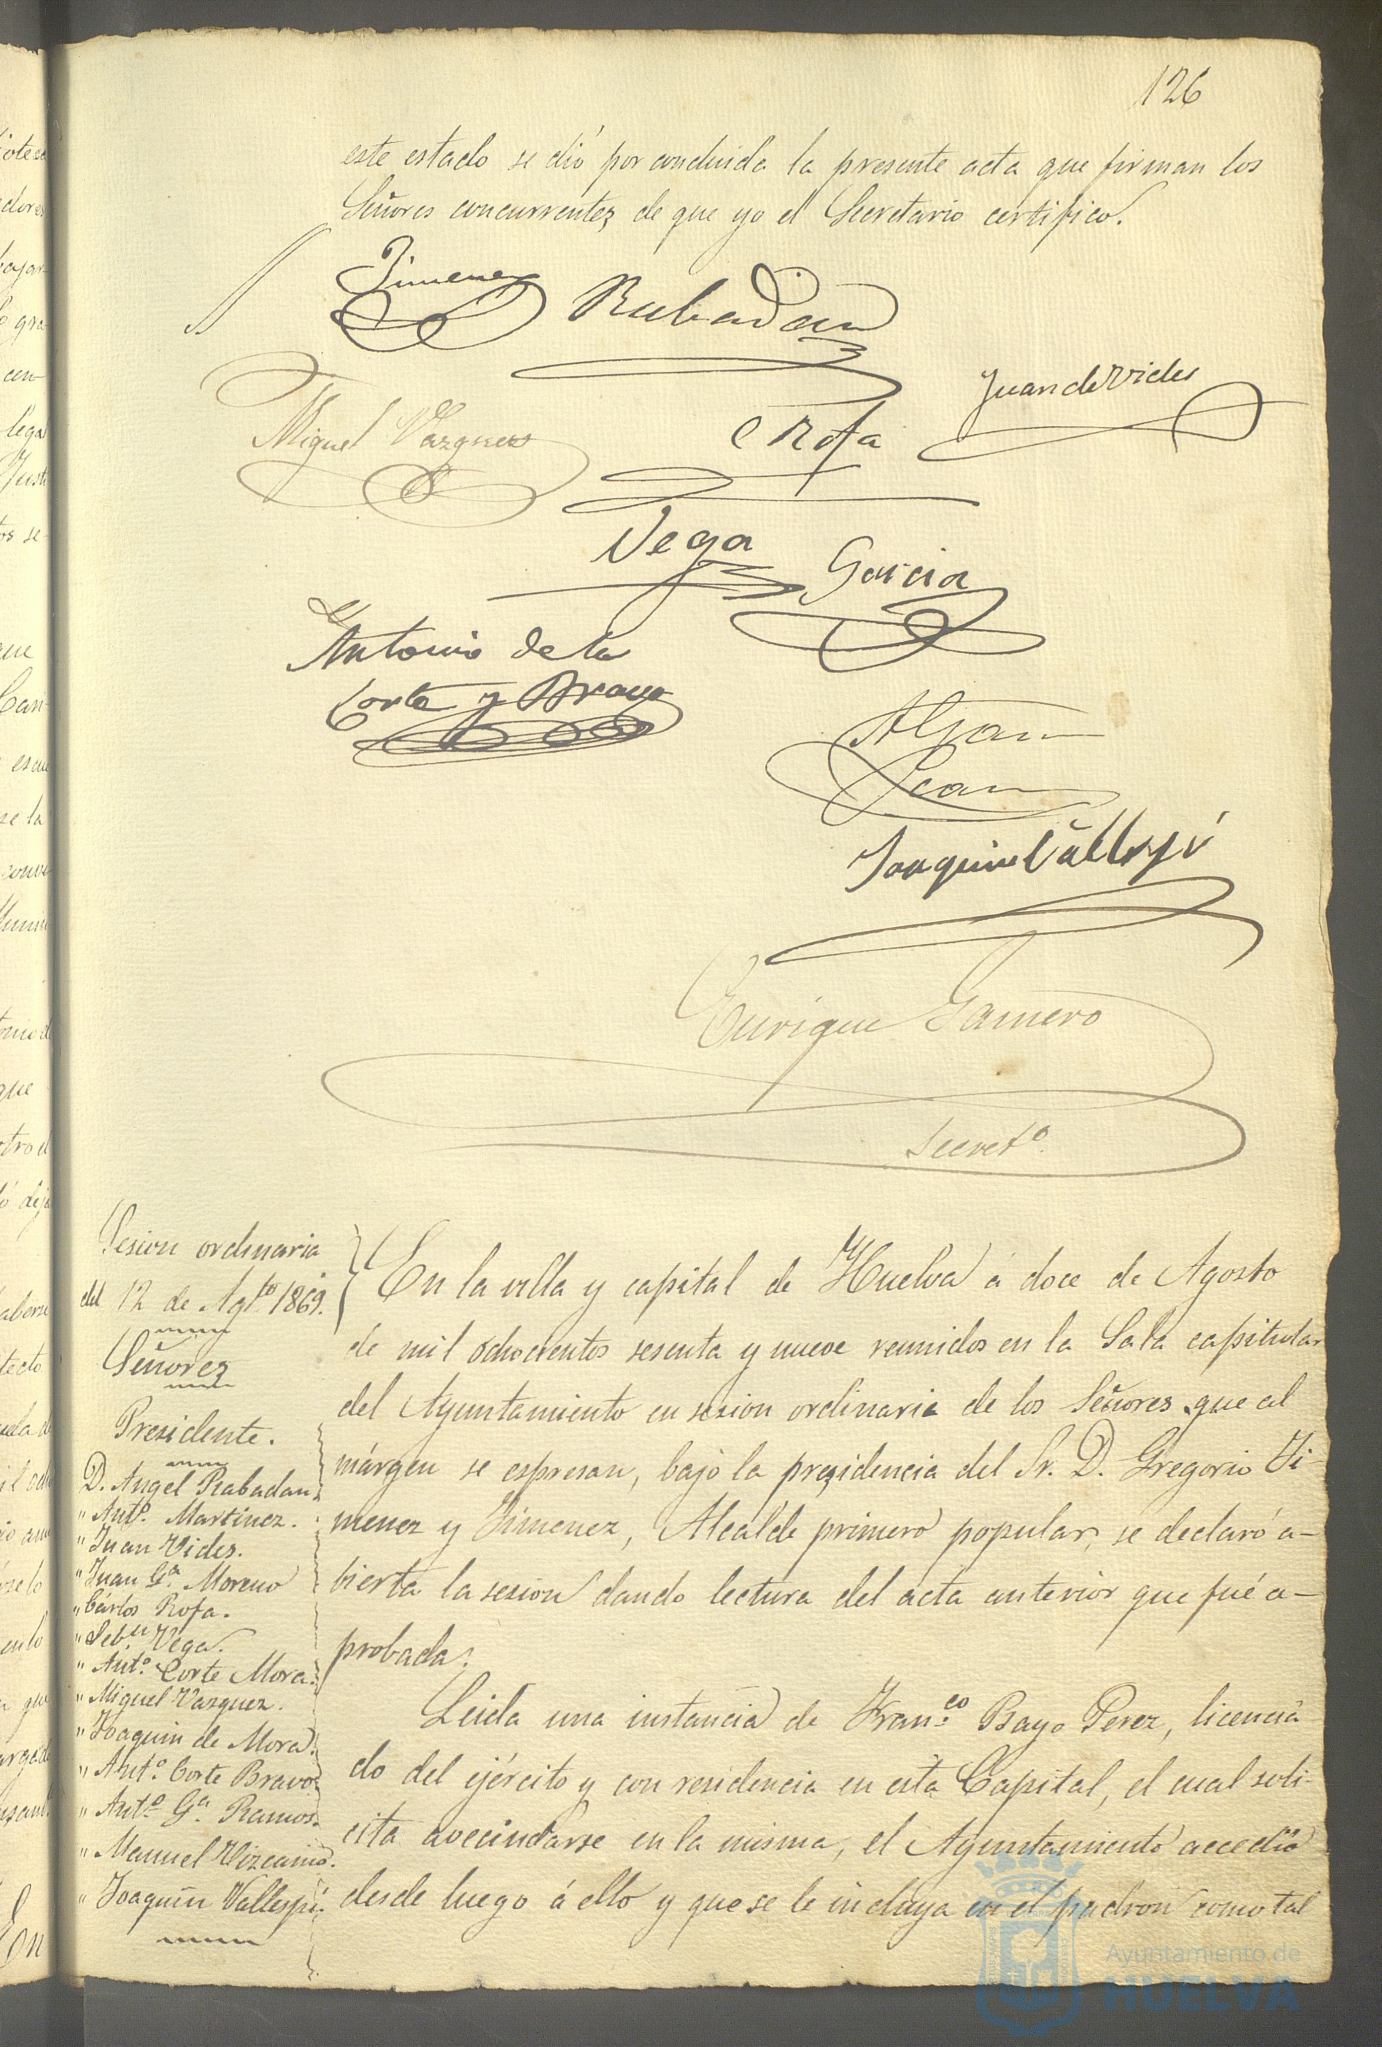 126
este estado se dió por concluida la presente acta que firman los
Señores concurrentes, de que yo el Secretario certifico.
Jimenez
Rabadan
Juan de Vides
Miguel Vazquez
C Rofa
Vega
Garcia
Antonio de la
Corte y Bravo
Joaquin Vallespí
Enrique Gamero
Secret.º
Sesion ordinaria
del 12 de Agt.º 1869.
Señores
Presidente.
D. Angel Rabadan
" Ant.º Martinez.
" Juan Vides.
" Juan G.ª Moreno
" Cárlos Rofa.
" Seb.n Vega.
" Ant.º Corte Mora.
" Miguel Vazquez.
" Joaquin de Mora.
" Ant.º Corte Bravo
" Ant.º G.ª Ramos.
" Manuel Vizcaino.
" Joaquin Vallespí.
En la villa y capital de Huelva á doce de Agosto
de mil ochocientos sesenta y nueve reunidos en la Sala capitular
del Ayuntamiento en sesion ordinaria de los Señores que al
márgen se espresan, bajo la presidencia del Sr. D. Gregorio Ji-
menez y Jimenez, Alcalde primero popular, se declaró a-
bierta la sesion dando lectura del acta anterior que fué a-
probada.
Leida una instancia de Fran.co Bayo Perez, licencia
do del ejército y con residencia en esta Capital, el cual soli-
cita avecindarse en la misma, el Ayuntamiento accedió
desde luego á ello y que se le incluya en el padron como tal
Ayuntamiento de
HUELVA